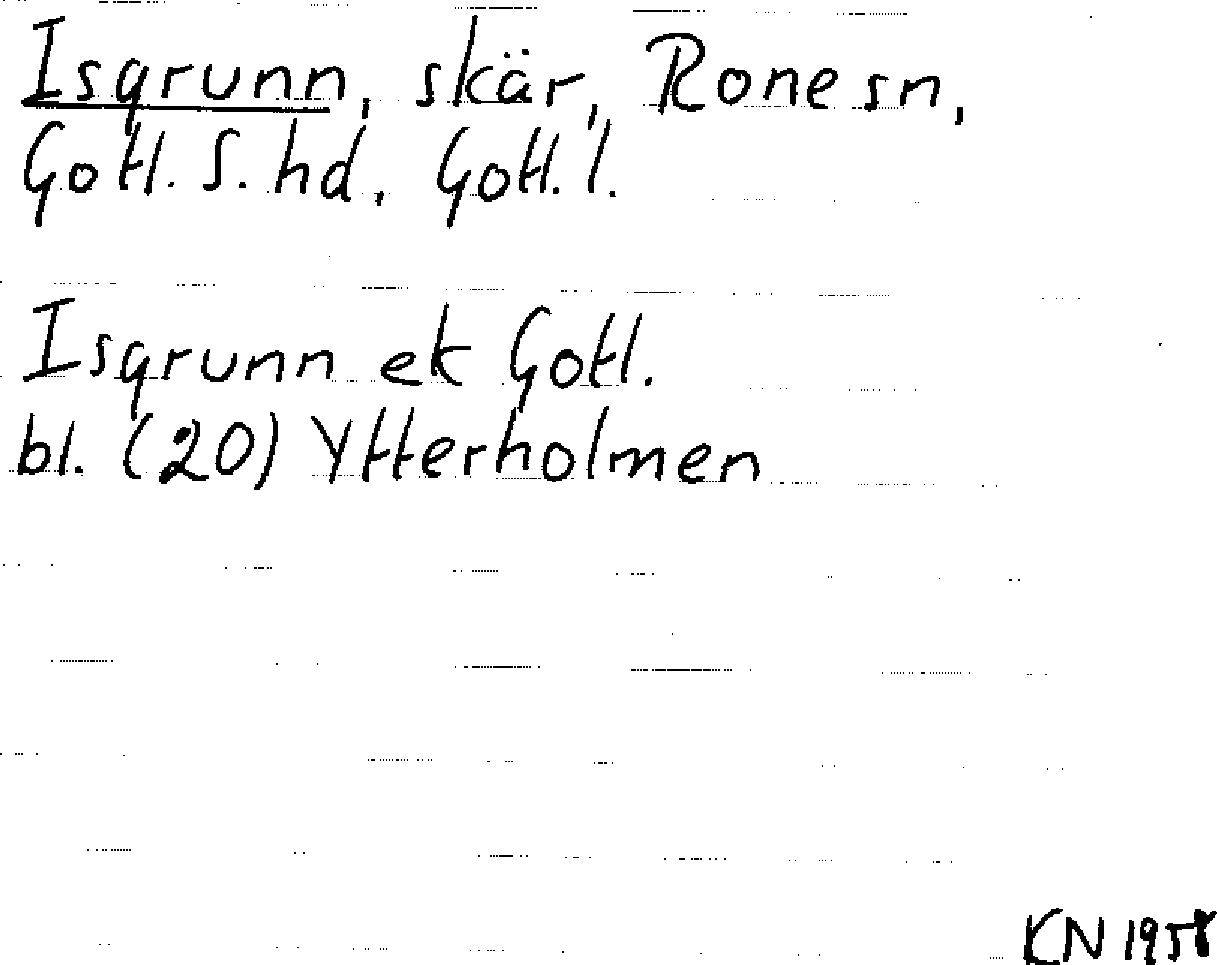 Isgrunn, skär, Rone sn,
Gotl. S. hd, Gotl. l.
Isgrunn ek Gotl.
bl. (20) Ytterholmen
KN 1958